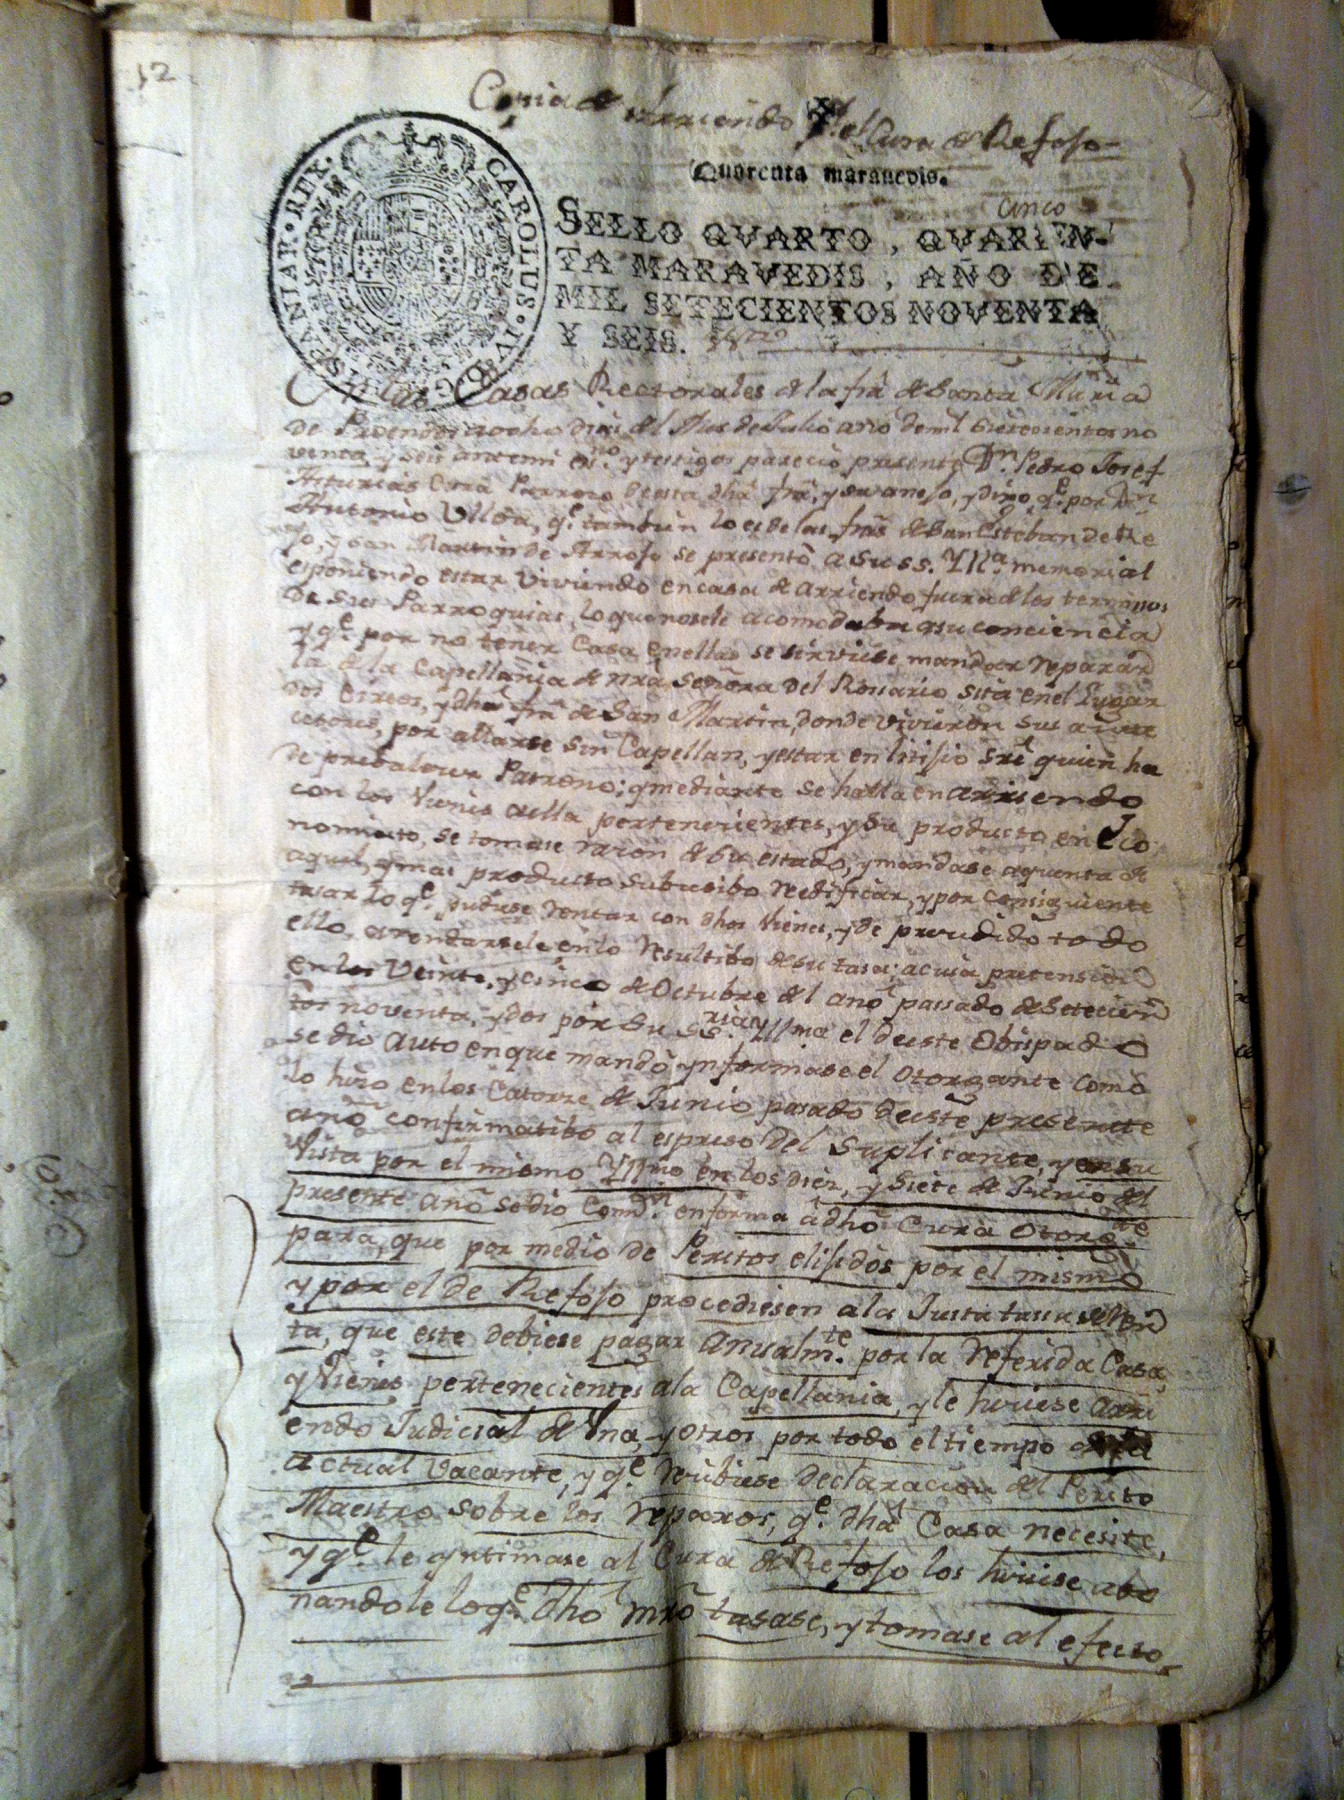 12
Copia de Arriendo del Cura de Refoso
Quarenta maravedis.
CAROLUS · IV · D · G · HISPANIAR · REX ·
cinco
SELLO QVARTO, QVAREN-
TA MARAVEDIS, AÑO DE
MIL SETECIENTOS NOVENTA
Y SEIS.
Casas Rectorales de la frâ de Santa Maria
de a ocho dias del Mes de Julio año de mil setecientos no
venta, y seis ante mi esno. y testigos parecio presente Dn. Pedro Josef
Asturias Cura Parroco de esta dhâ frâ, y su anejo, y dijo qe. por Dn
Antonio Ulloa, qe. tambien lo es de las frâs de San Esteban de Re
fo, y San Martin de Arrojo se presentò a su SS. Yllª. memorial
esponiendo estar Viviendo en casa de arriendo fuera de los terminos
de sus Parroquias, lo que no se le acomodaba a su conciencia
y qe. por no tener Casa en ellas se sirviese mandar reparar
la de la Capellania de nrâ Señora del Rosario, sita en el Lugar
dos Eireos, y dhâ frâ de San Martin, donde vivieron sus ante
cesores, por allarse sin Capellan, y estar en litijio sre quien ha
de prebalecer Patrono; q mediante se halla en arriendo
con los Vienes a ella pertenecientes, y su producto en Eco
nomato, se tomase razon de su estado, y mandase a quenta de
aquel, y mas producto subcesibo redificar, y por consiguiente
tasar lo qe. pudiese rentar con dhos Vienes, y de precedido todo
ello, arrendarsele en lo resultibo de su tasa; a cuia pretension
en los Veinte, y cinco de Octubre del año passado de Setecien
tos noventa, y dos por Su SSria. Yllma el de este Obispado
se dio auto en que mandò ynformase el Otorgante como
lo hizo en los Catorze de Junio pasado de este presente
año confirmatibo al espreso del Suplicante, y en su
Vista por el mismo Yllmo en los diez, y siete de Junio del
presente año se dio Comon. en forma â dhô Cura Otorgte
para, que por medio de Peritos elijidos por el mismo
y por el de Refojo procediesen a la Justa tassa de Ren
ta, que este debiese pagar anualmte. por la referida Casa,
y Vienes pertenecientes a la Capellania, y le hiciese arri
endo Judicial de Una, y otros por todo el tiempo de la
actual Vacante, y qe. recibiese declaracion del Perito
Maestro sobre los reparos, qe. dhâ Casa necesite,
y qe. le yntimase al Cura de Refojo los hiciese abo
nandole lo qe. dhô mrô tasase, y tomase al efecto,